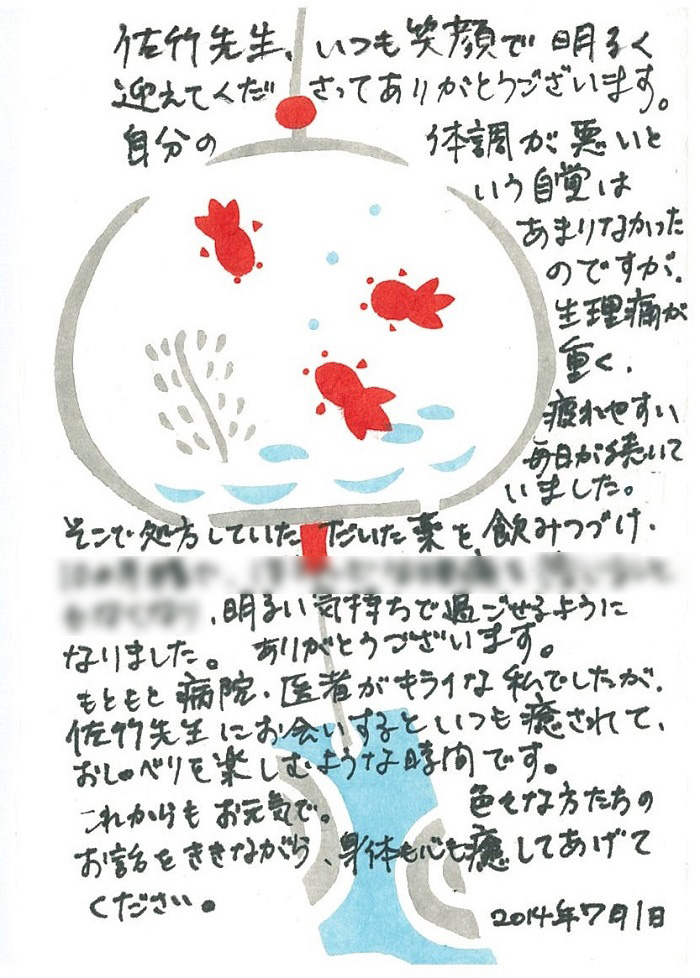 佐竹先生、いつも笑顔で明るく
迎えてくださってありがとうございます。
自分の体調が悪いと
いう自覚は
あまりなかった
のですが、
生理痛が
重く、
疲れやすい
毎日が続いて
いました。
そこで処方していただいた薬を飲みつづけ、
、明るい気持ちで過ごせるように
なりました。ありがとうございます。
もともと病院・医者がキライな私でしたが、
佐竹先生にお会いするといつも癒されて、
おしゃべりを楽しむような時間です。
これからもお元気で。色々な方たちの
お話をききながら、身体も心も癒してあげて
ください。
2014年7月1日